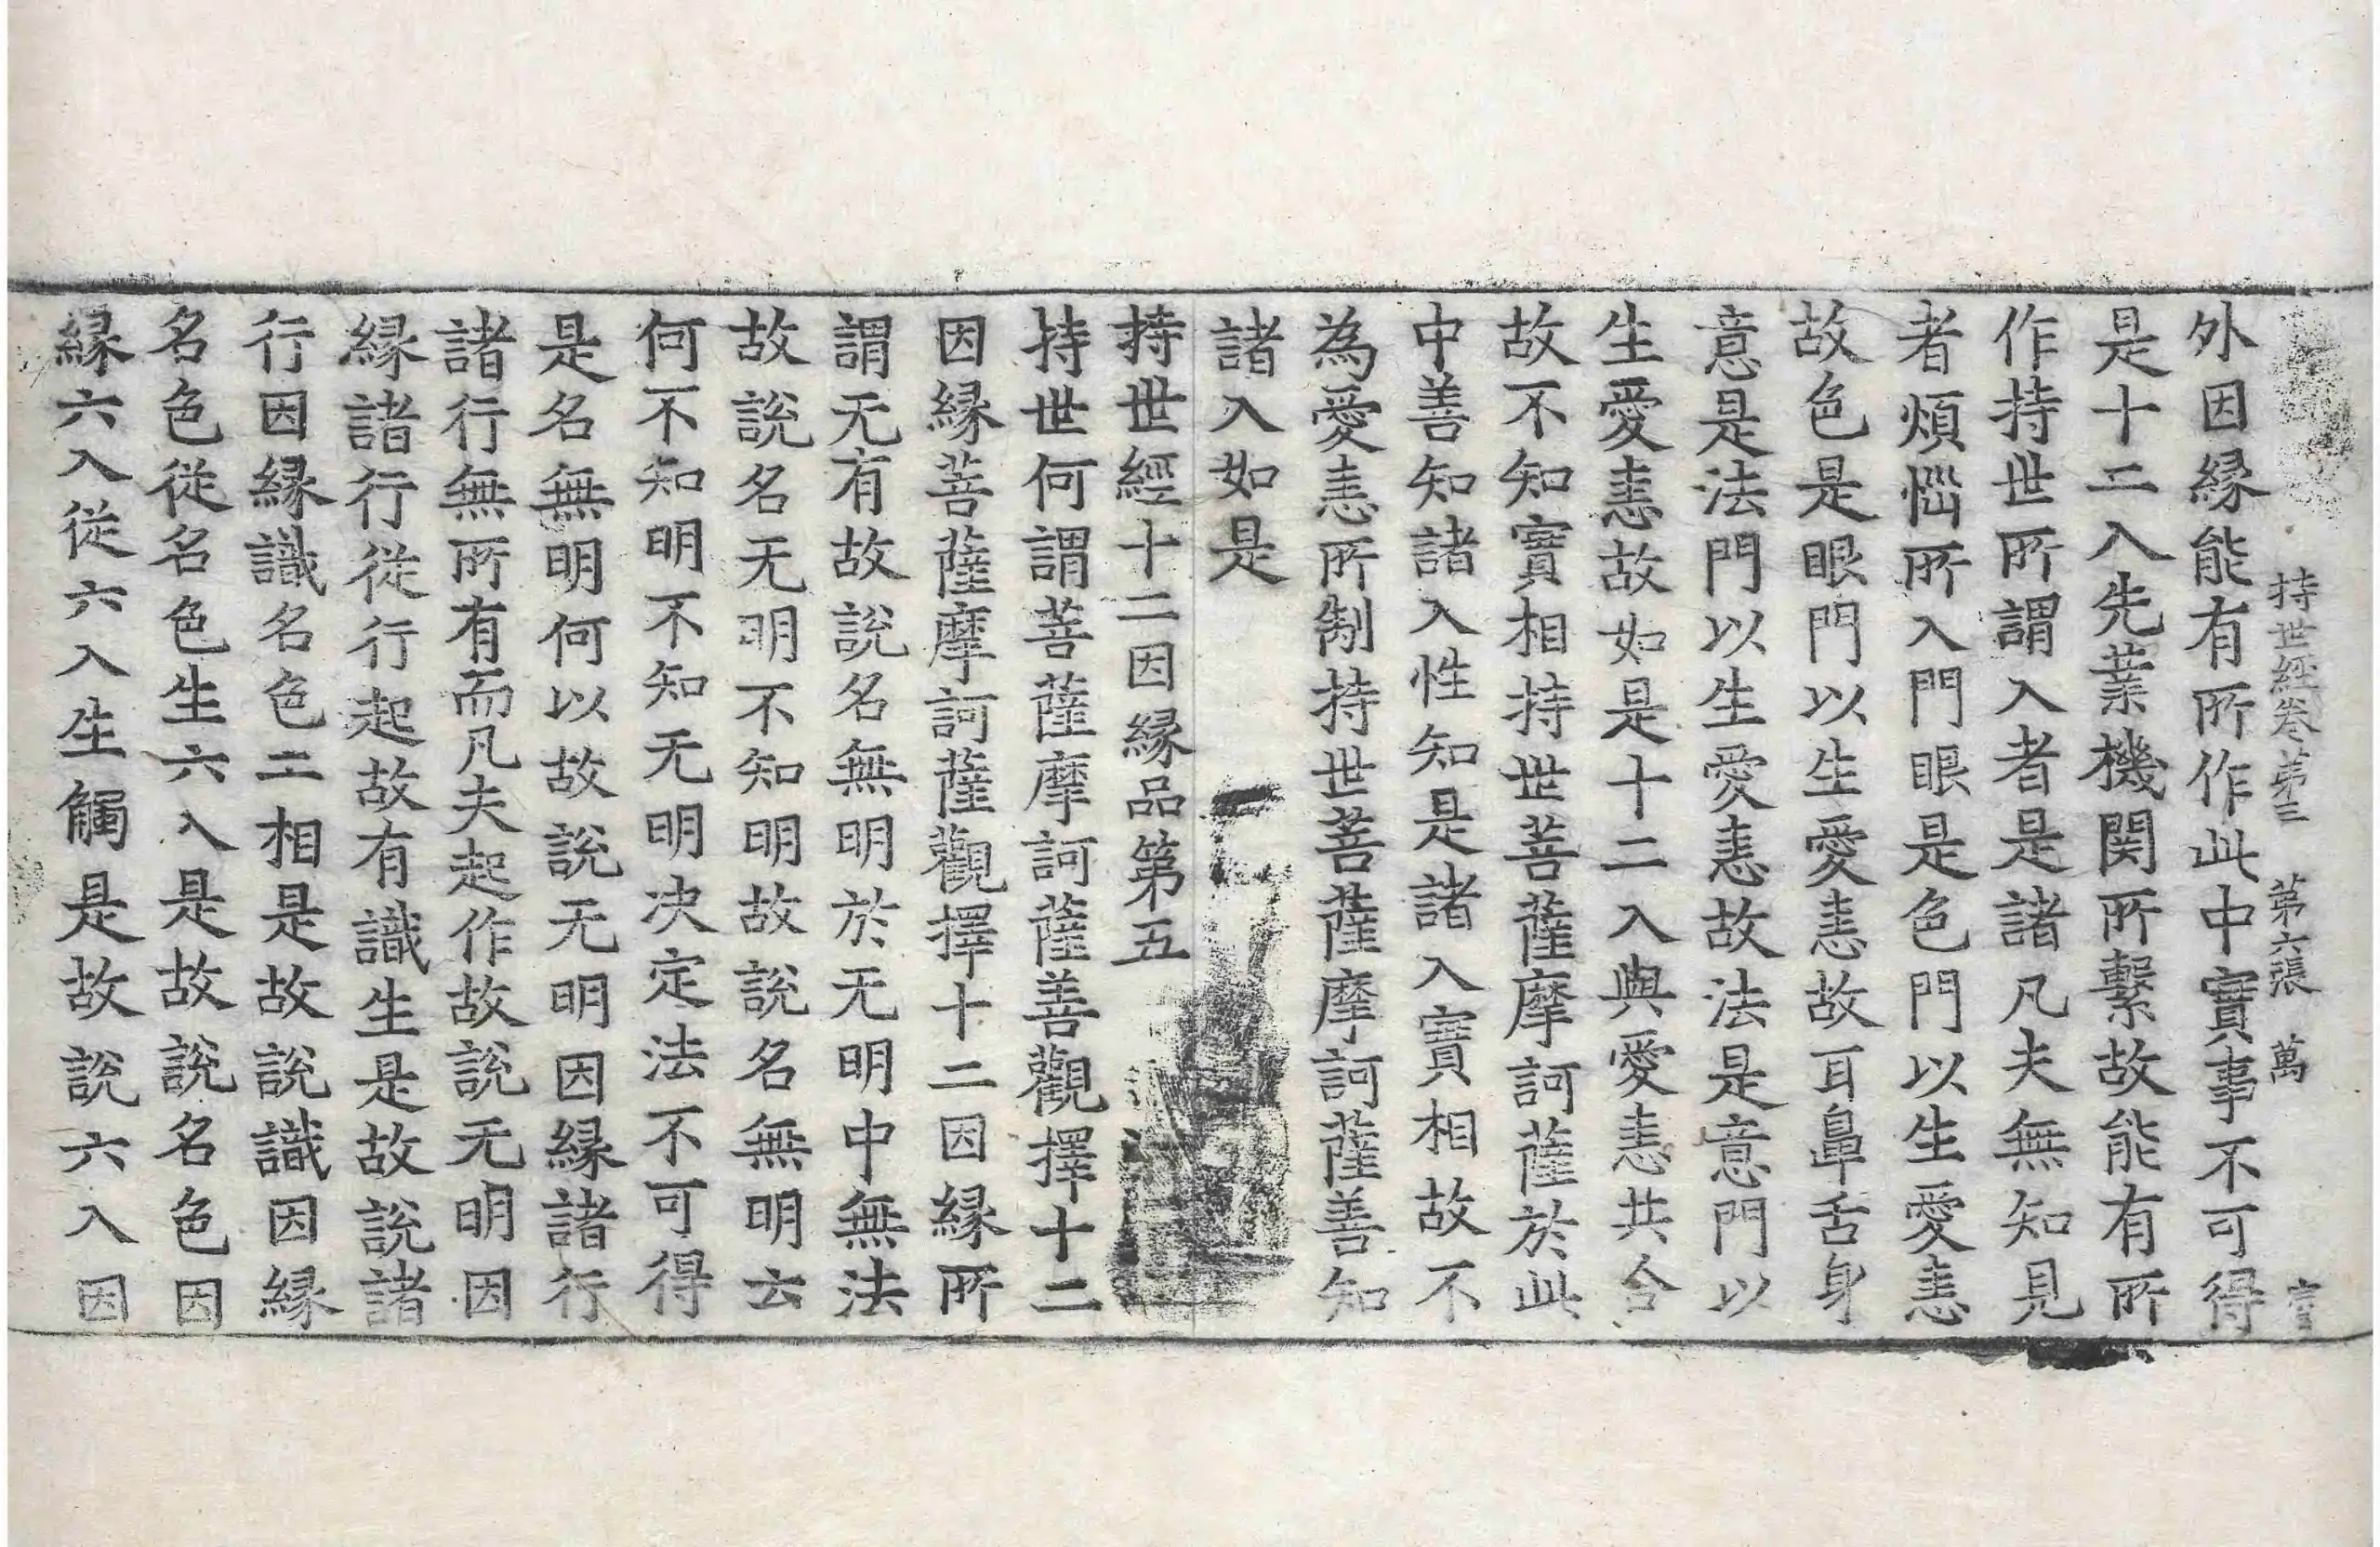 持世經卷第三　第六張　萬
外因縁能有所作此中實事不可得
是十二入先業機関所繫故能有所
作持世所謂入者是諸凡夫無知見
者煩惱所入門眼是色門以生愛恚
故色是眼門以生愛恚故耳鼻舌身
意是法門以生愛恚故法是意門以
生愛恚故如是十二入與愛恚共合
故不知實相持世菩薩摩訶薩於此
中善知諸入性知是諸入實相故不
為愛恚所制持世菩薩摩訶薩善知
諸入如是
持世經十二因縁品第五
持世何謂菩薩摩訶薩善觀擇十二
因縁菩薩摩訶薩觀擇十二因縁所
謂无有故說名無明於无明中無法
故說名无明不知明故說名無明云
何不知明不知无明决定法不可得
是名無明何以故說无明因縁諸行
諸行無所有而凡夫起作故說无明因
縁諸行從行起故有識生是故說諸
行因縁識名色二相是故說識因縁
名色從名色生六入是故說名色因
縁六入從六入生觸是故說六入因